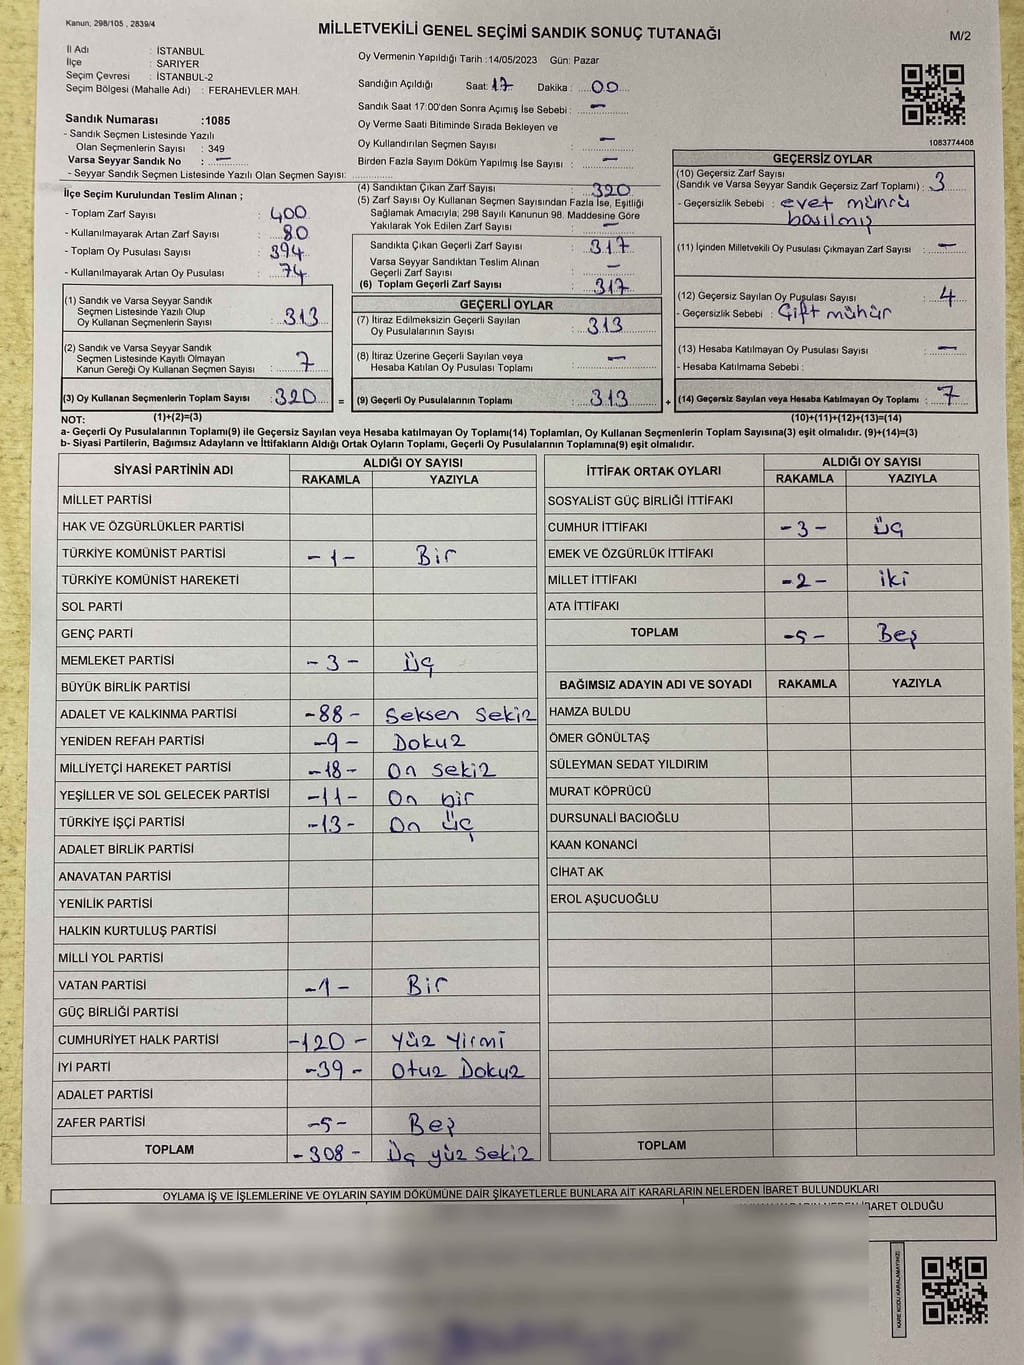 Kanun, 298/105 , 2839/4
MİLLETVEKİLİ GENEL SEÇİMİ SANDIK SONUÇ TUTANAĞI
M/2
İl Adı : İSTANBUL
İlçe : SARIYER
Seçim Çevresi : İSTANBUL-2
Seçim Bölgesi (Mahalle Adı) : FERAHEVLER MAH.
Sandık Numarası :1085
- Sandık Seçmen Listesinde Yazılı
Olan Seçmenlerin Sayısı : 349
Varsa Seyyar Sandık No : —
- Seyyar Sandık Seçmen Listesinde Yazılı Olan Seçmen Sayısı:
Oy Vermenin Yapıldığı Tarih :14/05/2023 Gün: Pazar
Sandığın Açıldığı Saat: 17 Dakika : 00
Sandık Saat 17:00'den Sonra Açımış İse Sebebi : —
Oy Verme Saati Bitiminde Sırada Bekleyen ve
Oy Kullandırılan Seçmen Sayısı : —
Birden Fazla Sayım Döküm Yapılmış İse Sayısı : —
1083774408
İlçe Seçim Kurulundan Teslim Alınan ;
- Toplam Zarf Sayısı : 400
- Kullanılmayarak Artan Zarf Sayısı : 80
- Toplam Oy Pusulası Sayısı : 394
- Kullanılmayarak Artan Oy Pusulası : 74
(1) Sandık ve Varsa Seyyar Sandık
Seçmen Listesinde Yazılı Olup
Oy Kullanan Seçmenlerin Sayısı : 313
(2) Sandık ve Varsa Seyyar Sandık
Seçmen Listesinde Kayıtlı Olmayan
Kanun Gereği Oy Kullanan Seçmen Sayısı : 7
(3) Oy Kullanan Seçmenlerin Toplam Sayısı : 320
(1)+(2)=(3)
(4) Sandıktan Çıkan Zarf Sayısı : 320
(5) Zarf Sayısı Oy Kullanan Seçmen Sayısından Fazla İse, Eşitliği
Sağlamak Amacıyla; 298 Sayılı Kanunun 98. Maddesine Göre
Yakılarak Yok Edilen Zarf Sayısı : —
Sandıkta Çıkan Geçerli Zarf Sayısı : 317
Varsa Seyyar Sandıktan Teslim Alınan
Geçerli Zarf Sayısı : —
(6) Toplam Geçerli Zarf Sayısı : 317
GEÇERLİ OYLAR
(7) İtiraz Edilmeksizin Geçerli Sayılan
Oy Pusulalarının Sayısı : 313
(8) İtiraz Üzerine Geçerli Sayılan veya
Hesaba Katılan Oy Pusulası Toplamı : —
= (9) Geçerli Oy Pusulalarının Toplamı : 313 +
GEÇERSİZ OYLAR
(10) Geçersiz Zarf Sayısı
(Sandık ve Varsa Seyyar Sandık Geçersiz Zarf Toplamı) : 3
- Geçersizlik Sebebi : evet mührü
basılmış
(11) İçinden Milletvekili Oy Pusulası Çıkmayan Zarf Sayısı : —
(12) Geçersiz Sayılan Oy Pusulası Sayısı : 4
- Geçersizlik Sebebi : Çift mühür
(13) Hesaba Katılmayan Oy Pusulası Sayısı : —
- Hesaba Katılmama Sebebi :
(14) Geçersiz Sayılan veya Hesaba Katılmayan Oy Toplamı : 7
(10)+(11)+(12)+(13)=(14)
NOT:
a- Geçerli Oy Pusulalarının Toplamı(9) ile Geçersiz Sayılan veya Hesaba katılmayan Oy Toplamı(14) Toplamları, Oy Kullanan Seçmenlerin Toplam Sayısına(3) eşit olmalıdır. (9)+(14)=(3)
b- Siyasi Partilerin, Bağımsız Adayların ve İttifakların Aldığı Ortak Oyların Toplamı, Geçerli Oy Pusulalarının Toplamına(9) eşit olmalıdır.
SİYASİ PARTİNİN ADI ALDIĞI OY SAYISI
RAKAMLA YAZIYLA
MİLLET PARTİSİ
HAK VE ÖZGÜRLÜKLER PARTİSİ
TÜRKİYE KOMÜNİST PARTİSİ -1- Bir
TÜRKİYE KOMÜNİST HAREKETİ
SOL PARTİ
GENÇ PARTİ
MEMLEKET PARTİSİ -3- Üç
BÜYÜK BİRLİK PARTİSİ
ADALET VE KALKINMA PARTİSİ -88- Seksen Sekiz
YENİDEN REFAH PARTİSİ -9- Dokuz
MİLLİYETÇİ HAREKET PARTİSİ -18- On sekiz
YEŞİLLER VE SOL GELECEK PARTİSİ -11- On bir
TÜRKİYE İŞÇİ PARTİSİ -13- On üç
ADALET BİRLİK PARTİSİ
ANAVATAN PARTİSİ
YENİLİK PARTİSİ
HALKIN KURTULUŞ PARTİSİ
MİLLİ YOL PARTİSİ
VATAN PARTİSİ -1- Bir
GÜÇ BİRLİĞİ PARTİSİ
CUMHURİYET HALK PARTİSİ -120- Yüz Yirmi
İYİ PARTİ -39- Otuz Dokuz
ADALET PARTİSİ
ZAFER PARTİSİ -5- Beş
TOPLAM -308- Üç yüz Sekiz
İTTİFAK ORTAK OYLARI ALDIĞI OY SAYISI
RAKAMLA YAZIYLA
SOSYALİST GÜÇ BİRLİĞİ İTTİFAKI
CUMHUR İTTİFAKI -3- Üç
EMEK VE ÖZGÜRLÜK İTTİFAKI
MİLLET İTTİFAKI -2- iki
ATA İTTİFAKI
TOPLAM -5- Beş
BAĞIMSIZ ADAYIN ADI VE SOYADI RAKAMLA YAZIYLA
HAMZA BULDU
ÖMER GÖNÜLTAŞ
SÜLEYMAN SEDAT YILDIRIM
MURAT KÖPRÜCÜ
DURSUNALİ BACIOĞLU
KAAN KONANCİ
CİHAT AK
EROL AŞUCUOĞLU
TOPLAM
OYLAMA İŞ VE İŞLEMLERİNE VE OYLARIN SAYIM DÖKÜMÜNE DAİR ŞİKAYETLERLE BUNLARA AİT KARARLARIN NELERDEN İBARET BULUNDUKLARI
İBARET OLDUĞU
KARE KODU KARALAMAYINIZ